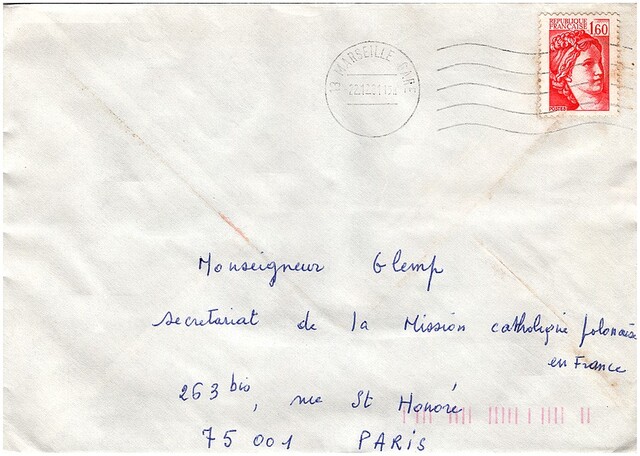 REPUBLIQUE
FRANCAISE 1,60
13 MARSEILLE GARE
Monseigneur Glemp
secretariat de la Mission catholique polonaise
en France
263 bis, rue St Honoré
75 001 PARIS